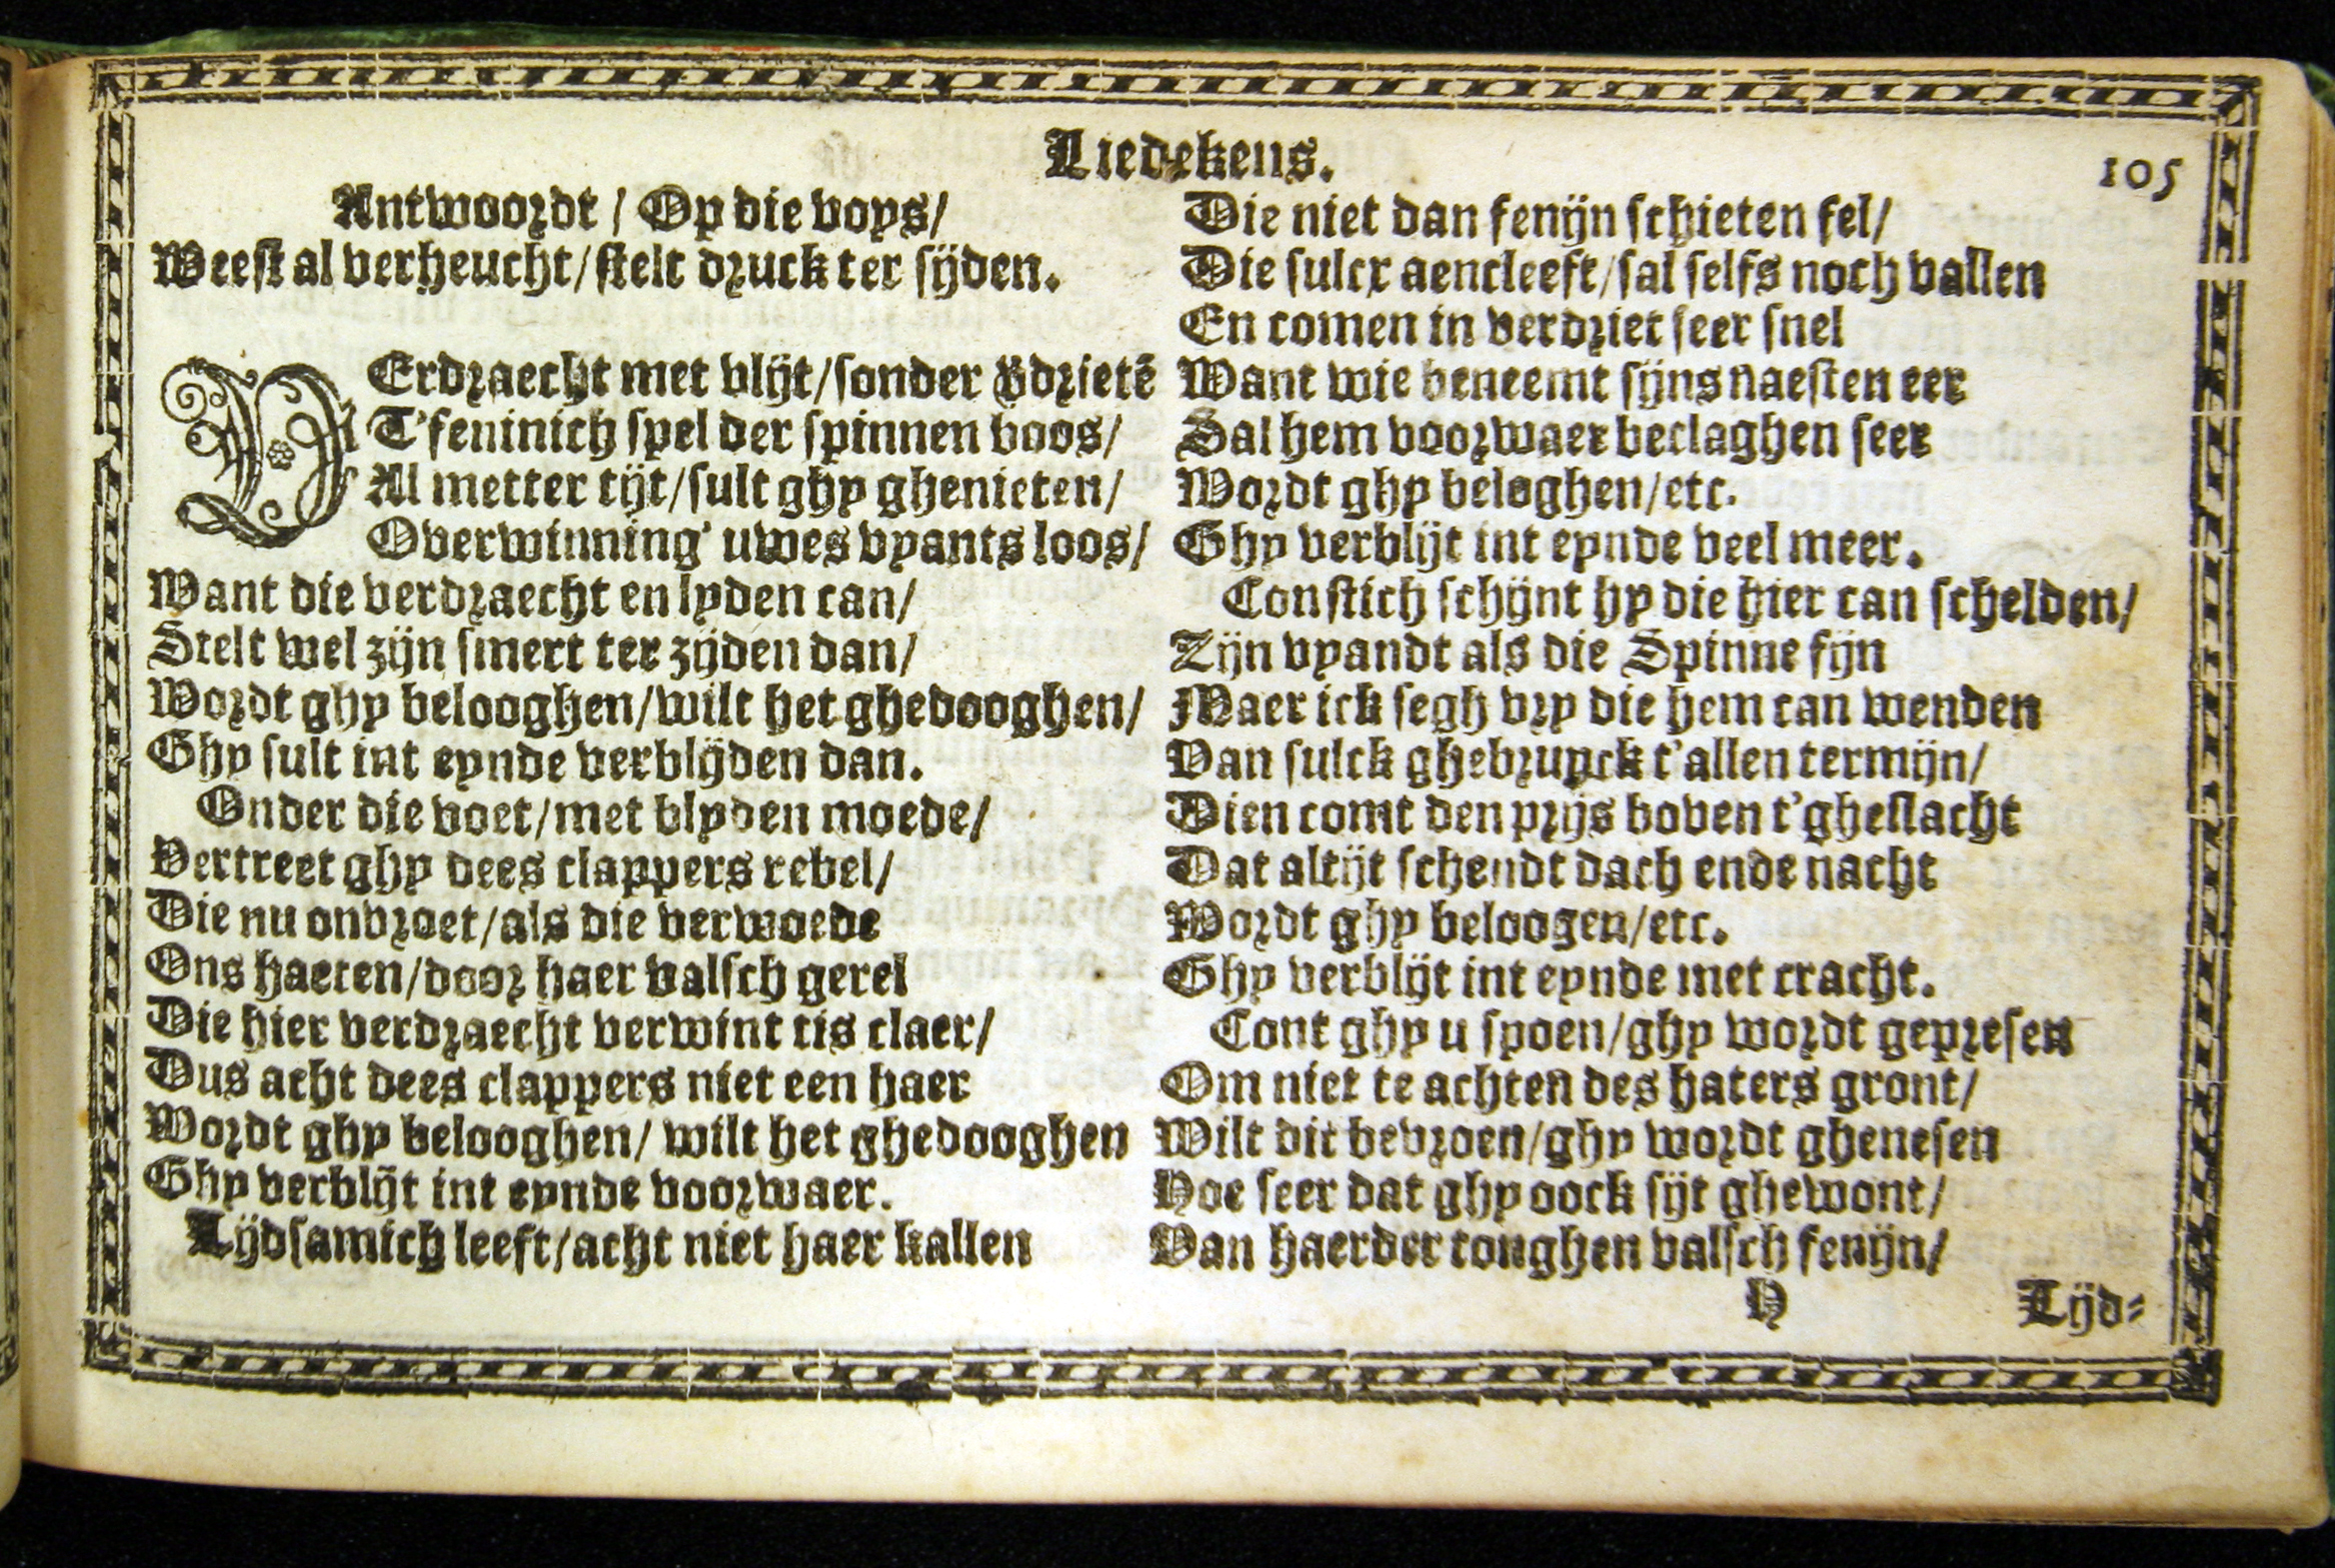 Liedekens.
105
Antwoordt / Op die voys/
Weest al verheucht/stelt druck ter sijden.
VErdraecht met vlijt/sonder v̄drietē
T'feninich spel der spinnen boos/
Al metter tijt/sult ghy ghenieten/
Overwinning' uwes vyants loos/
Want die verdraecht en lyden can/
Stelt wel zijn smert ter zijden dan/
Wordt ghy belooghen/wilt het ghedooghen/
Ghy sult int eynde verblijden dan.
Onder die voet/met blyden moede/
Vertreet ghy dees clappers rebel/
Die nu onvroet/als die verwoede
Ons haeten/door haer valsch gerel
Die hier verdraecht verwint tis claer/
Dus acht dees clappers niet een haer
Wordt ghy belooghen/ wilt het ghedooghen
Ghy verblijt int eynde voorwaer.
Lijdsamich leeft/acht niet haer kallen
Die niet dan fenijn schieten fel/
Die sulcx aencleeft/sal selfs noch vallen
En comen in verdriet seer snel
Want wie beneemt sijns naesten eer
Sal hem voorwaer beclaghen seer
Wordt ghy beloghen/etc.
Ghy verblijt int eynde veel meer.
Constich schijnt hy die hier can schelden/
Zijn vyandt als die Spinne fijn
Maer ick segh vry die hem can wenden
Van sulck ghebruyck t'allen termijn/
Dien comt den prijs boven t'gheslacht
Dat altijt schendt dach ende nacht
Wordt ghy beloogen/etc.
Ghy verblijt int eynde met cracht.
Cont ghy u spoen/ghy wordt gepresen
Om niet te achten des haters gront/
Wilt dit bevroen/ghy wordt ghenesen
Hoe seer dat ghy oock sijt ghewont/
Van haerder tonghen valsch fenijn/
H
Lijd=